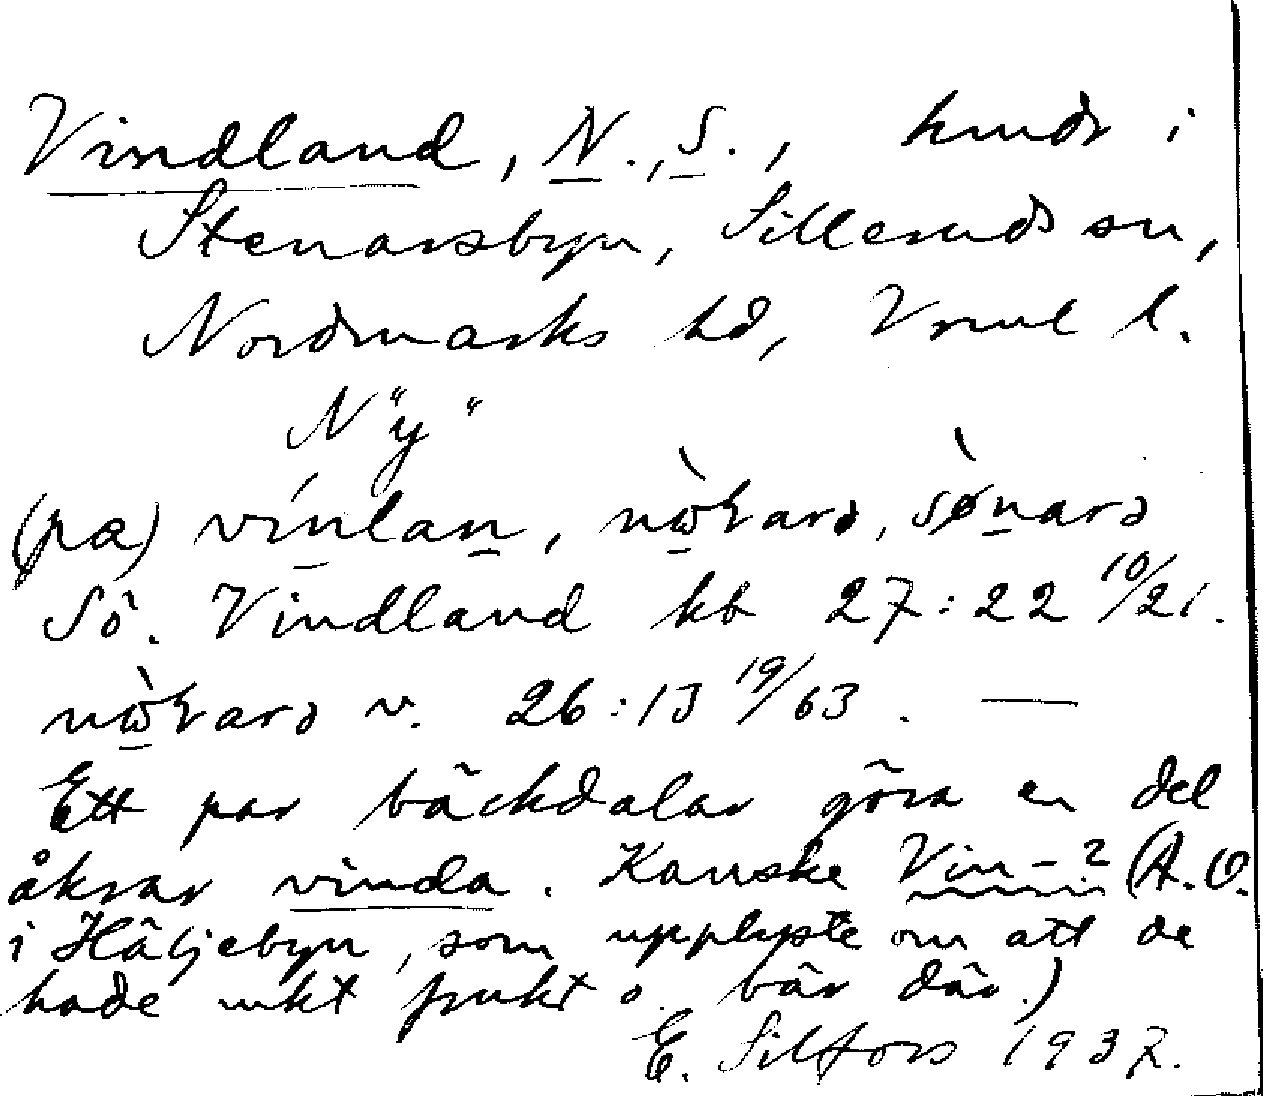 Vindland, N., S., hmdr i
Stenarsbyn, Silleruds sn,
Nordmarks hd, Vrml l.
N "y"
(pa) vínlan, nὼkard, sø̀nard
Sö. Vindland kb 27:22 10/21.
nὼkard v. 26:13 19/63. —
Ett par bäckdalar göra en del
åkrar vinda. Kanske Vin-? (A.O.
i Häljebyn, som upplyste om att de
hade mkt frukt o. bär där.)
E. Silfors 1937.